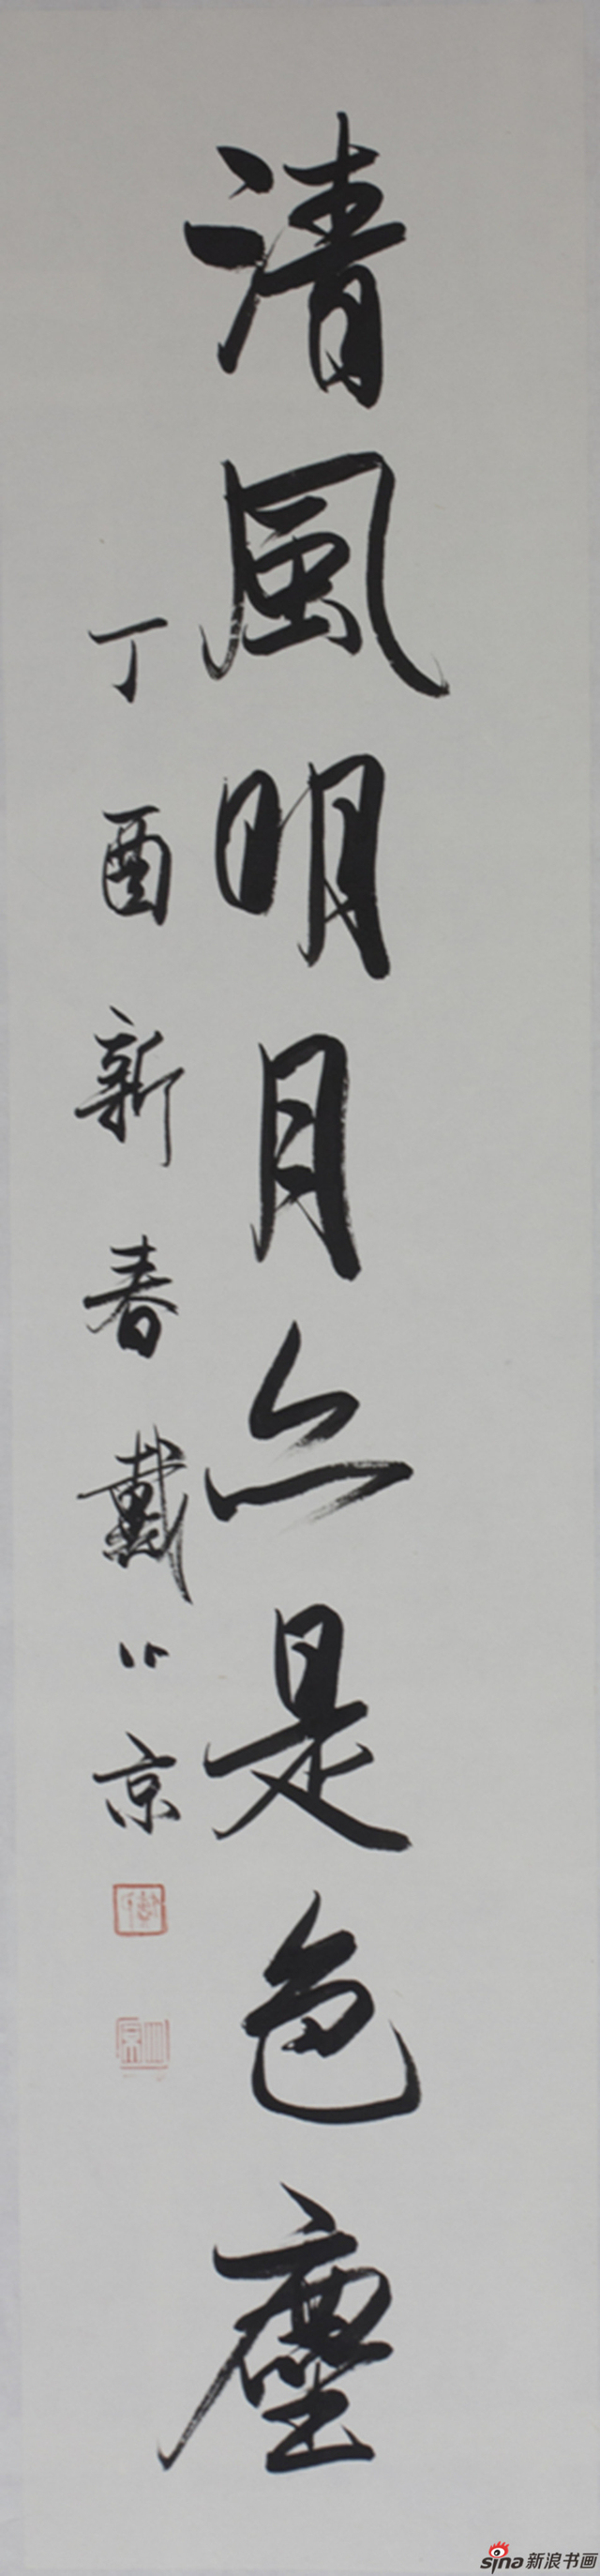 清風明月亦是色塵
丁酉新春戴小京
sina 新浪书画